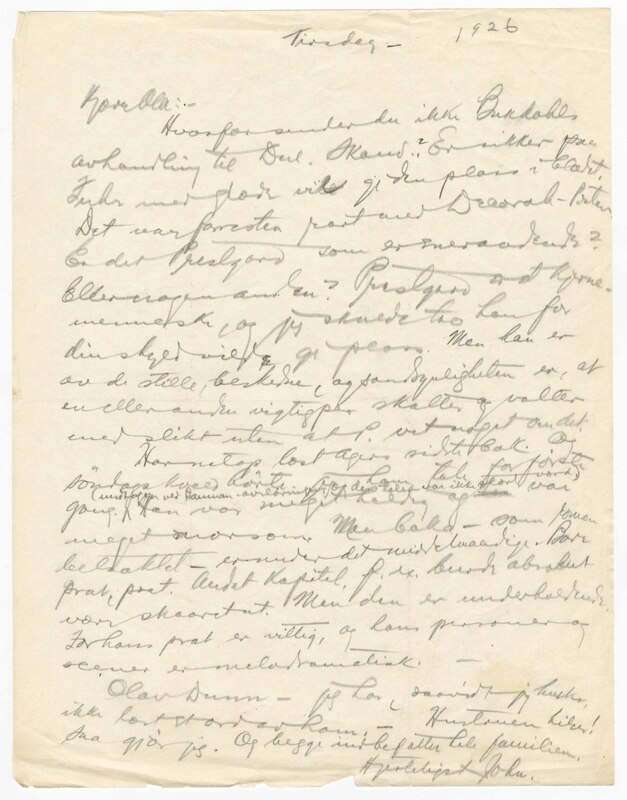 Tirsdag — 1926
Kjære Ola:-
Hvorfor sender du ikke Bukdahls
avhandling til Dul. Skand.? Er sikker paa
Fuhr med glæde vil gi den plass i bladet.
Det var forresten rart med Decorah-Posten
Er det Prestgard som er eneraadende?
Eller nogen anden? Prestgard er et hjerne-
menneske, og jeg skulde tro han for
din skyld vilde gi plass. Men han er
av de stille, beskedne, og sandsynligheten er, at
en eller anden vigtigper skalter og valter
med slikt uten at P. vet noget om det.
Har netop læst Agers sidste bok. Og
söndagskveld hörte jeg ham tale for første
(undtagen ved avslöring, og den talen var ikke stor værd)
gang. Han var meget heldig og var
meget morsom. Men boka — som roman
betraktet — er under det middelmaadige. Bare
prat, prat. Andet kapitel, f. ex. burde absolut
vært skaaret ut. Men den er underholdende.
For hans prat er vittig, og hans personer og
scener er melodramatisk. —
Olav Duun — jeg har, saavidt jeg husker,
ikke læst et ord av ham. — Hustruen hilser!
Saa gjør jeg. Og begge indbefatter hele familien.
Hjerteligst John.